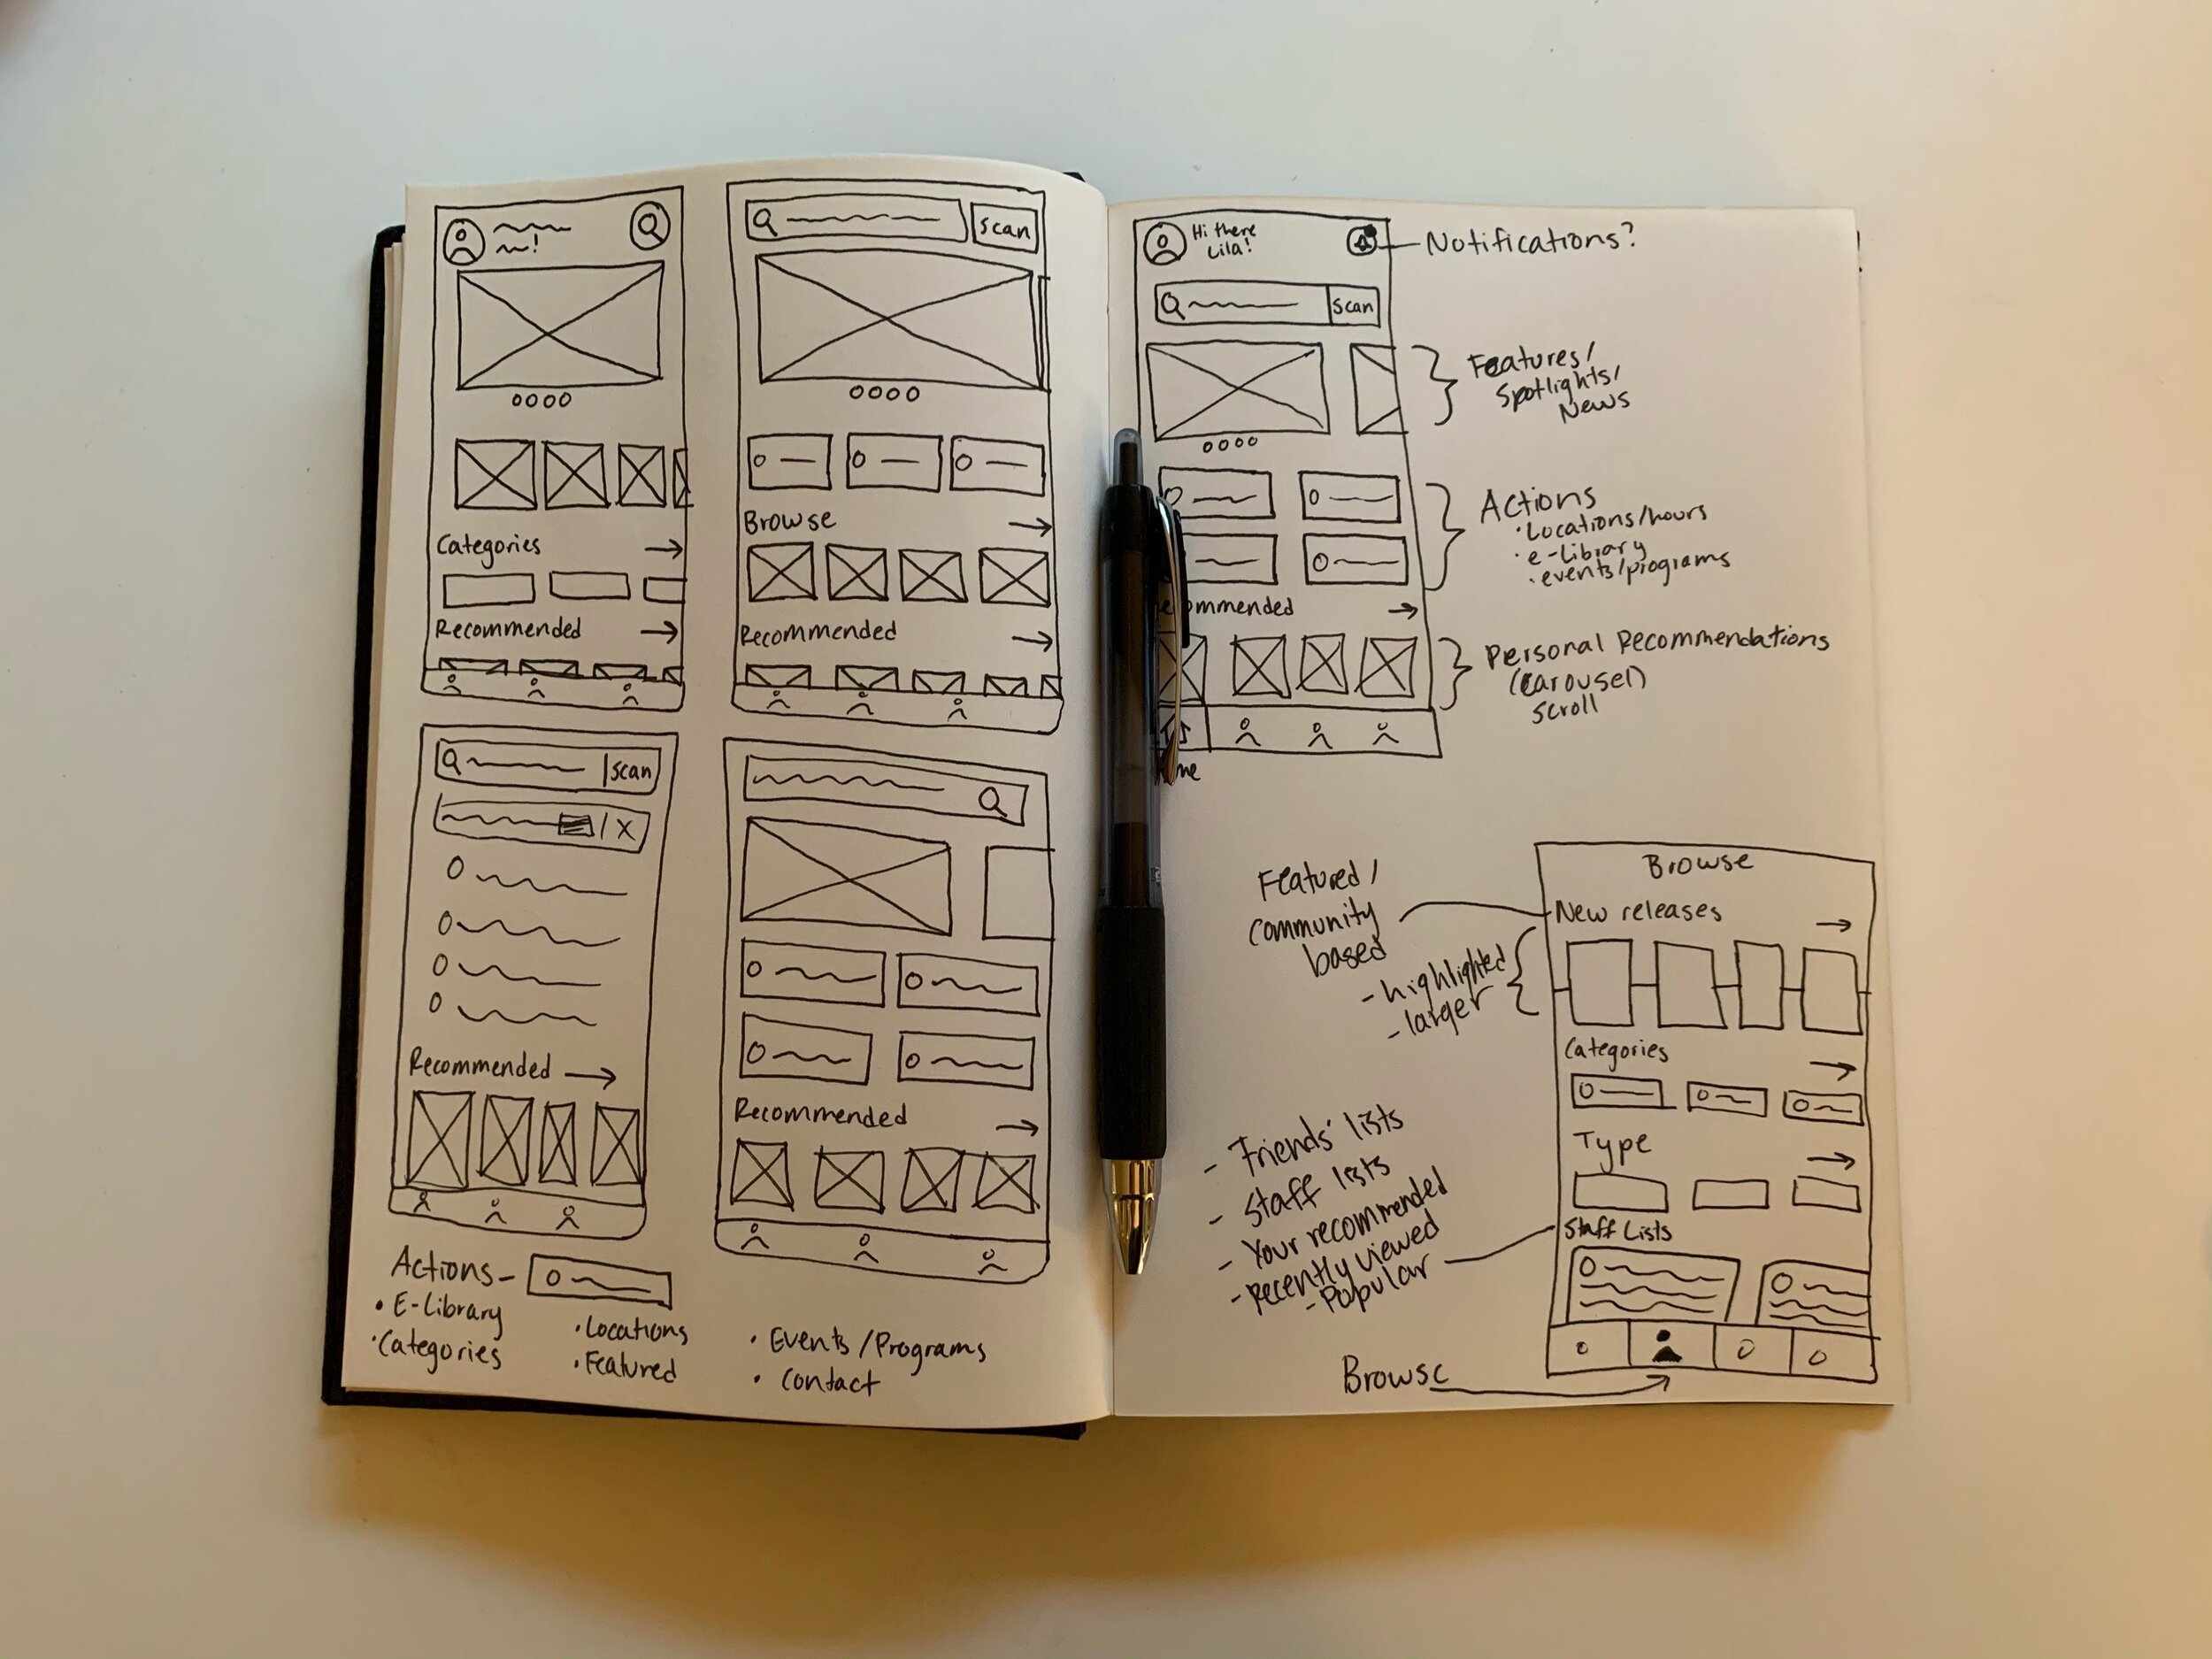 Categories
Recommended
Scan
Browse
Recommended
Scan
Recommended
Recommended
Actions-
• E-Library
• Categories
• Locations
• Featured
• Events/Programs
• Contact
Hi there
Lila!
Notifications?
Scan
Features/
Spotlights/
News
Actions
• Locations/hours
• e-Library
• events/programs
ecommended
Personal Recommendations
(Carousel)
scroll
me
Featured/
community
based
- highlighted
- larger
- Friends' lists
- Staff lists
- Your recommended
- Recently viewed
- Popular
Browse
New releases
Categories
Type
Staff Lists
Browse